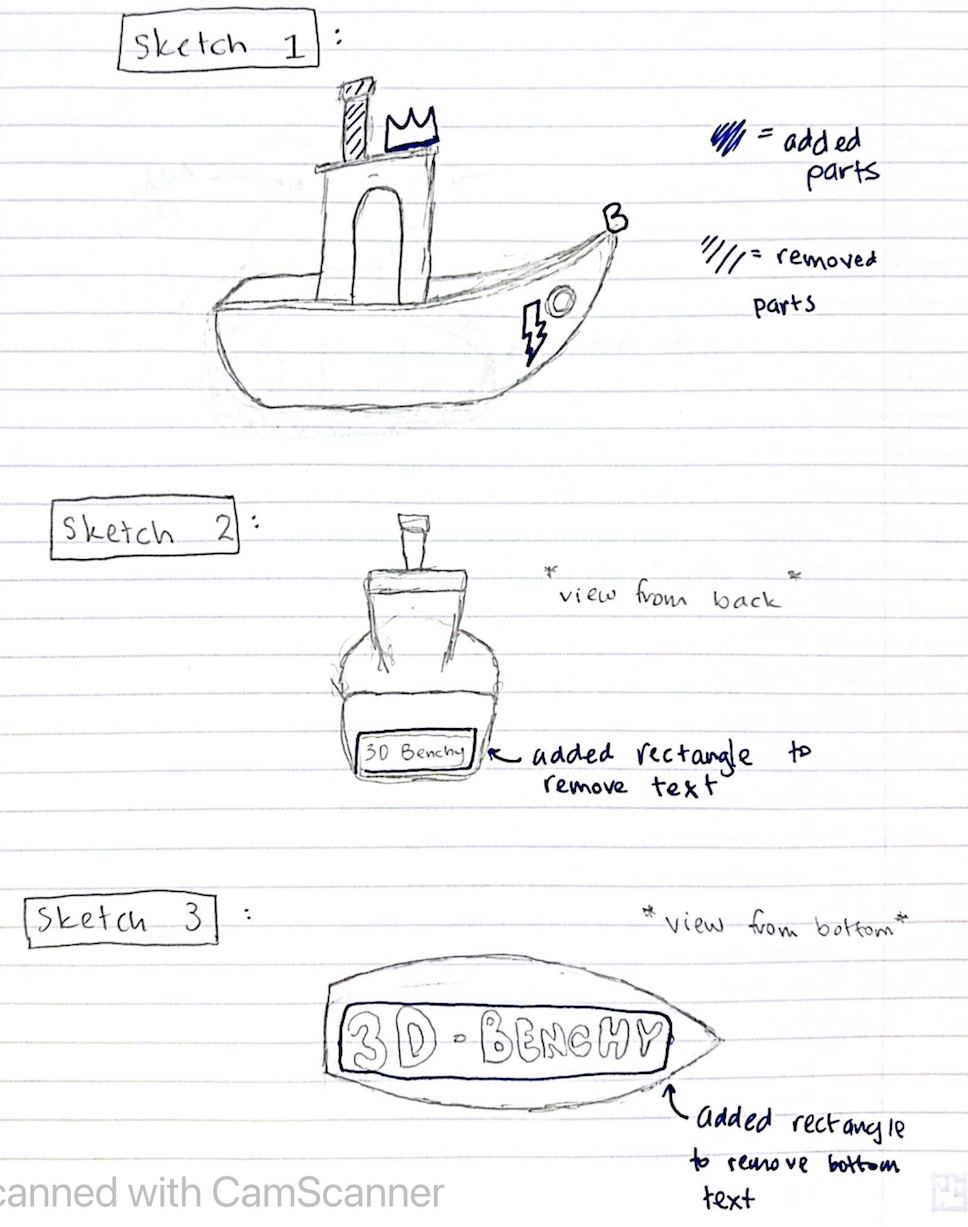 Sketch 1 :
= added
parts
B
= removed
parts
Sketch 2 :
*view from back*
3D Benchy
added rectangle to
remove text
Sketch 3 :
*view from bottom*
3D - BENCHY
added rectangle
to remove bottom
text
canned with CamScanner